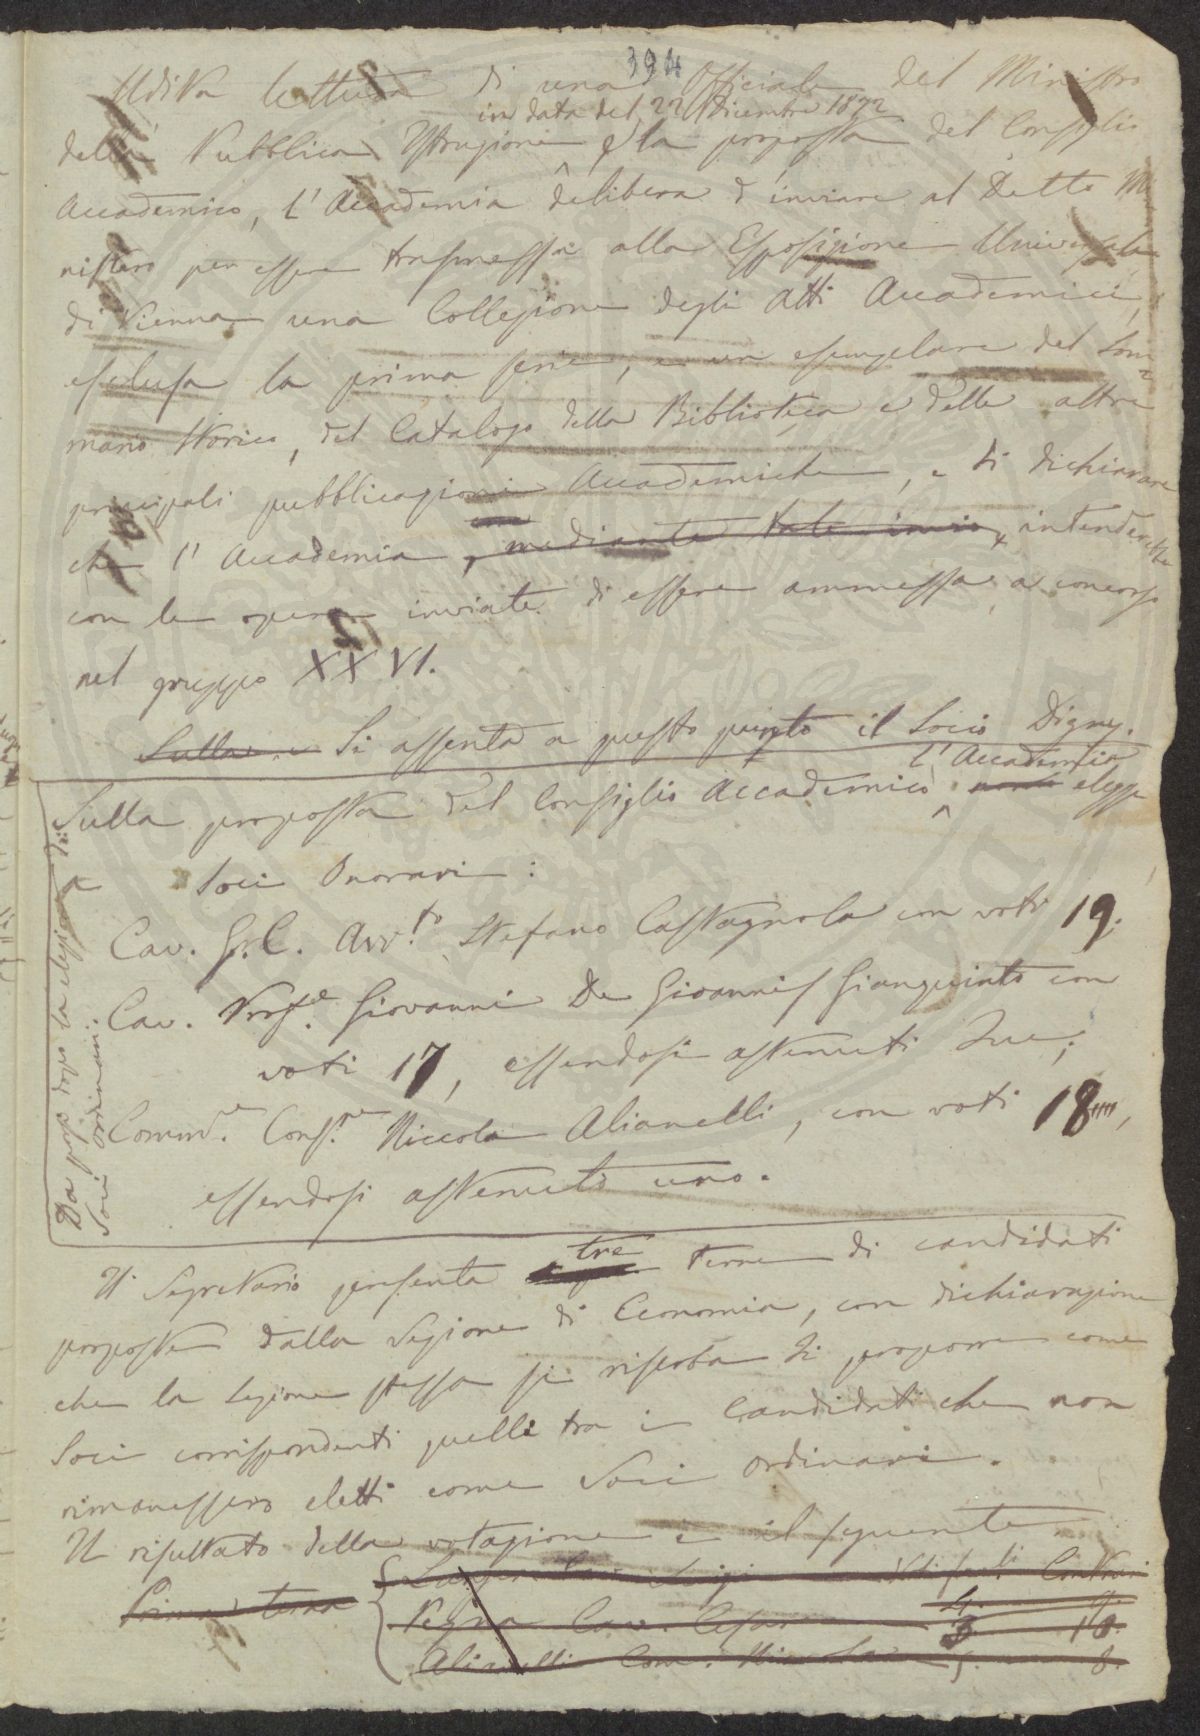 394
Udita lettura di una Officiale del Ministro
in data del 22 Dicembre 1872
della Pubblica Istruzione e la proposta del Consiglio
Accademico, l'Accademia delibera d'inviare al Detto Mi
nistero per essere trasmessa alla Esposizione Universale
di Vienna una Collezione degli Atti Accademici,
esclusa la prima serie, e un esemplare del Som
mario Storico, del Catalogo della Biblioteca e delle altre
principali pubblicazioni Accademiche, e di dichiarare
che l'Accademia, mediante tale invio, intenderebbe
con le opere inviate di essere ammessa a concorso
nel gruppo XXVI.
Sulla Si assenta a questo punto il Socio Digny.
l'Accademia
Sulla proposta del Consiglio Accademico elegge
Soci Onorari:
Cav. Gr. C. Avv.to Stefano Castagnola con voti 19.
Cav. Prof.e Giovanni De Gioannis Gianquinto con
voti 17, essendosi astenuti Due;
Comm.e Cons.re Niccola Alianelli, con voti 18,
essendosi astenuto uno.
Da porsi dopo la elezione di
Soci ordinari.
tre
Il Segretario presenta terne di candidati
proposte dalla Sezione di Economia, con dichiarazione
che la Sezione stessa si riserba di proporre come
Soci corrispondenti quelli tra i Candidati che non
rimanessero eletti come Soci ordinari.
Il risultato della votazione è il seguente
Prima terna
Luigi Voti favoli Contrari
4.
Cav. Cesare 3 18.
Alianelli Com. Niccola 5. 8.